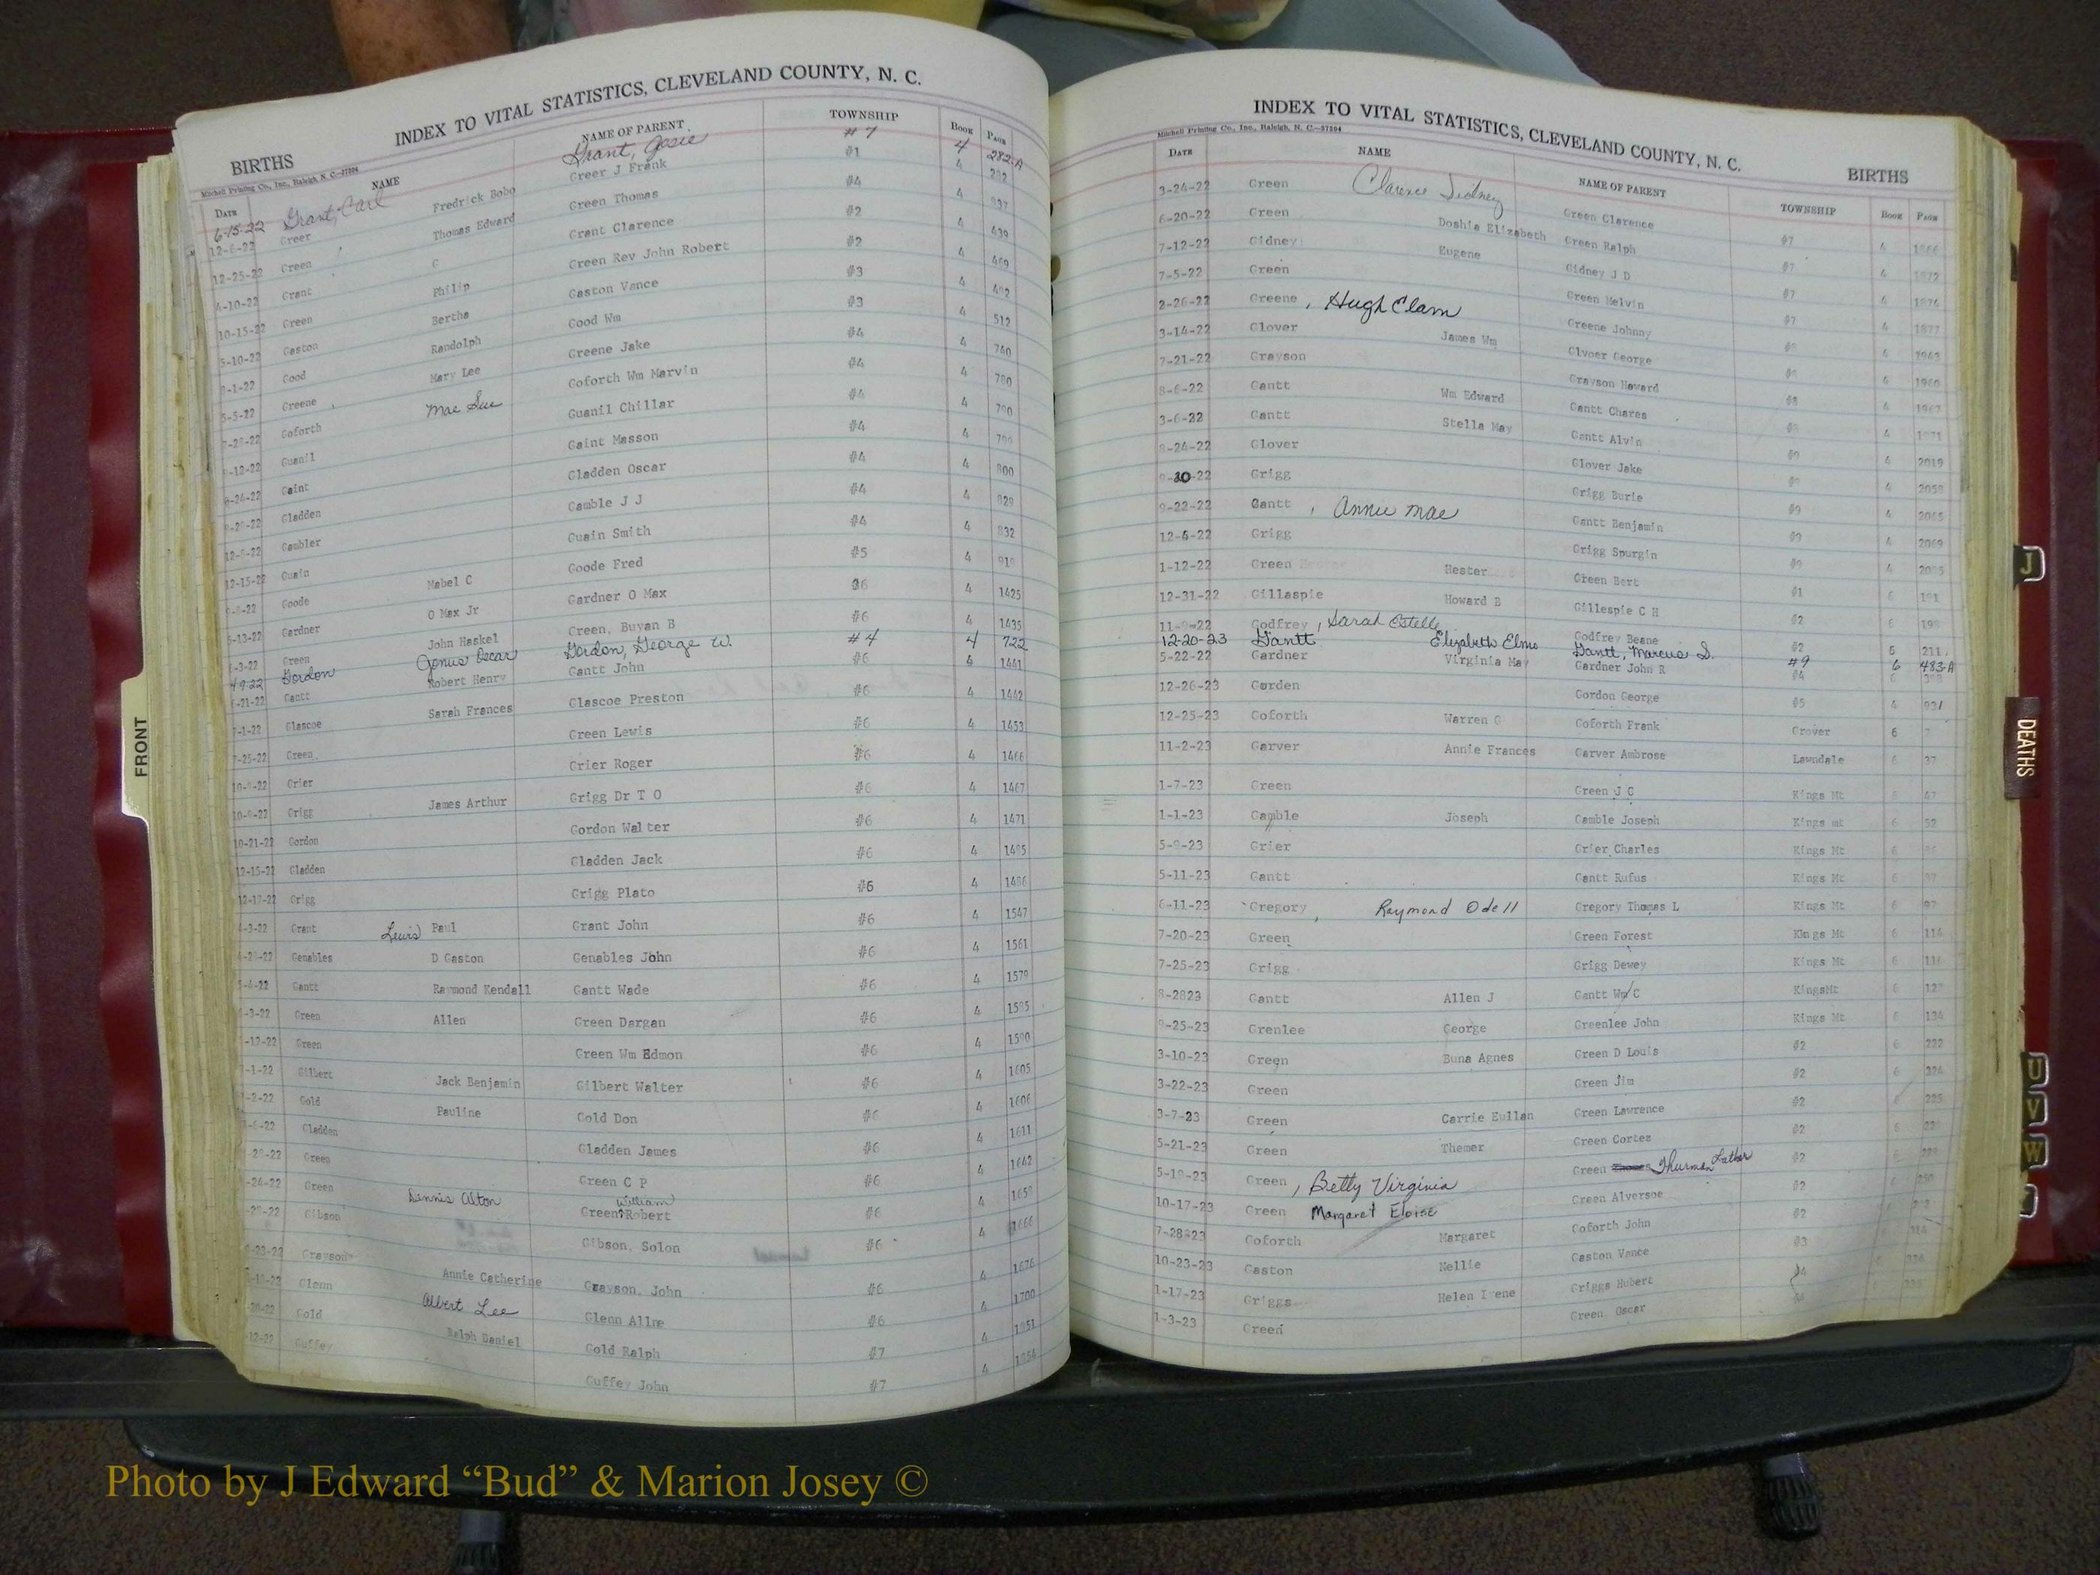 INDEX TO VITAL STATISTICS, CLEVELAND COUNTY, N. C.
BIRTHS
Mitchell Printing Co., Inc., Raleigh, N. C.—37204
DATE NAME NAME OF PARENT TOWNSHIP BOOK PAGE
6-15-22 Grant, Carl Grant, Gosie #7 4 282-A
12-6-22 Greer Fredrick Bobo Greer J Frank #1 4
12-25-22 Green Thomas Edward Green Thomas #4 4
4-10-22 Grant G Grant Clarence #2 4 439
10-15-22 Green Philip Green Rev John Robert #2 4
5-10-22 Gaston Bertha Gaston Vance #3 4
-1-22 Good Randolph Good Wm #3 4 512
5-5-22 Greene Mary Lee Greene Jake #4 4 740
-28-22 Goforth Mae Sue Goforth Wm Marvin #4 4 780
-12-22 Guanil Guanil Chillar #4 4 790
-24-22 Gaint Gaint Masson #4 4
-20-22 Gladden Gladden Oscar #4 4 800
12-8-22 Gambler Gamble J J #4 4 829
12-15-22 Guain Guain Smith #4 4 832
-22 Goode Mabel C Goode Fred #5 4
5-13-22 Gardner O Max Jr Gardner O Max 4 1425
-3-22 Green John Haskel Green, Buyan B #6 4 1435
4-9-22 Gordon Genus Oscar Gordon, George W. #4 4 722
-21-22 Gantt Robert Henry Gantt John #6 1441
-1-22 Glascoe Sarah Frances Glascoe Preston #6 4 1442
-25-22 Green Green Lewis #6 4 1453
10-9-22 Grier Grier Roger #6 4 1466
10-9-22 Grigg James Arthur Grigg Dr T O #6 4 1467
10-21-22 Gordon Gordon Walter #6 4 1471
12-15-22 Gladden Gladden Jack #6 4 1485
12-17-22 Grigg Grigg Plato #6 4 1486
4-3-22 Grant Lewis Paul Grant John #6 4 1547
-22 Genables D Gaston Genables John #6 4 1561
-22 Gantt Raymond Kendall Gantt Wade #6 4 1579
-3-22 Green Allen Green Dargan #6 4 1585
-22 Green Green Wm Edmon #6 4 1590
-1-22 Gilbert Jack Benjamin Gilbert Walter #6 4 1605
-2-22 Gold Pauline Gold Don #6 4 1606
-6-22 Gladden Gladden James #6 4 1611
-22 Green Green C P #6 4 1642
-24-22 Green Dennis Alton Green, William Robert #6 4
-22 Gibson Gibson, Solon #6 4
-23-22 Grayson Annie Catherine Grayson, John #6 4 1676
-22 Glenn Albert Lee Glenn Allne #6 4 1700
20-22 Gold Ralph Daniel Gold Ralph #7 4 1851
-12-22 Guffey Guffey John #7 4 1854
INDEX TO VITAL STATISTICS, CLEVELAND COUNTY, N. C.
BIRTHS
Mitchell Printing Co., Inc., Raleigh, N. C.—37204
DATE NAME NAME OF PARENT TOWNSHIP BOOK PAGE
3-24-22 Green Clarence Sidney Green Clarence #7 4 1866
6-20-22 Green Doshia Elizabeth Green Ralph #7 4 1872
7-12-22 Gidney Eugene Gidney J D #7 4 1874
7-5-22 Green Green Melvin #7 4 1877
2-26-22 Greene, Hugh Elam Greene Johnny 4
3-14-22 Glover James Wm Glvoer George 4 1960
7-21-22 Grayson Grayson Howard 4 1967
8-6-22 Gantt Wm Edward Gantt Chares 4 1971
3-6-22 Gantt Stella May Gantt Alvin #9 4 2019
8-24-22 Glover Glover Jake #9 4
9-30-22 Grigg Grigg Burie #9 4 2065
9-22-22 Gantt, Annie Mae Gantt Benjamin #9 4 2069
12-6-22 Grigg Grigg Spurgin #9 4
1-12-22 Green Hester Green Bert #1 6
12-31-22 Gillaspie Howard B Gillespie C H #2 6
11-9-22 Godfrey, Sarah Estelle Godfrey Beane #2 6 211
12-20-23 Gantt Elizabeth Elmo Gantt, Marcus S. #9 6 483-A
5-22-22 Gardner Virginia May Gardner John R #4 6
12-26-23 Gorden Gordon George #5 4 931
12-25-23 Goforth Warren G Goforth Frank Grover 6 7
11-2-23 Garver Annie Frances Garver Ambrose Lawndale 6 37
1-7-23 Green Green J C Kings Mt 6 47
1-1-23 Gamble Joseph Gamble Joseph Kings mt 6 52
5-9-23 Grier Grier Charles Kings Mt 6
5-11-23 Gantt Gantt Rufus Kings Mt 6
6-11-23 Gregory, Raymond Odell Gregory Thomas L Kings Mt 6 97
7-20-23 Green Green Forest Kings Mt 6 114
7-25-23 Grigg Grigg Dewey Kings Mt 6
8-2823 Gantt Allen J Gantt Wm C KingsMt 6
9-25-23 Grenlee George Greenlee John Kings Mt 6 134
3-10-23 Green Buna Agnes Green D Louis #2 6 222
3-22-23 Green Green Jim #2 6 224
3-7-23 Green Carrie Eullan Green Lawrence #2 6 225
5-21-23 Green Themer Green Cortez #2 6
5-19-23 Green, Betty Virginia Green Thurman Luther #2 6
10-17-23 Green Margaret Eloise Green Alversoe #2
7-28-23 Goforth Margaret Goforth John #3
10-23-23 Gaston Nellie Gaston Vance #4
1-17-23 Griggs Helen Irene Griggs Hubert
1-3-23 Green Green Oscar
FRONT
J
DEATHS
U
V
W
Photo by J Edward “Bud” & Marion Josey ©